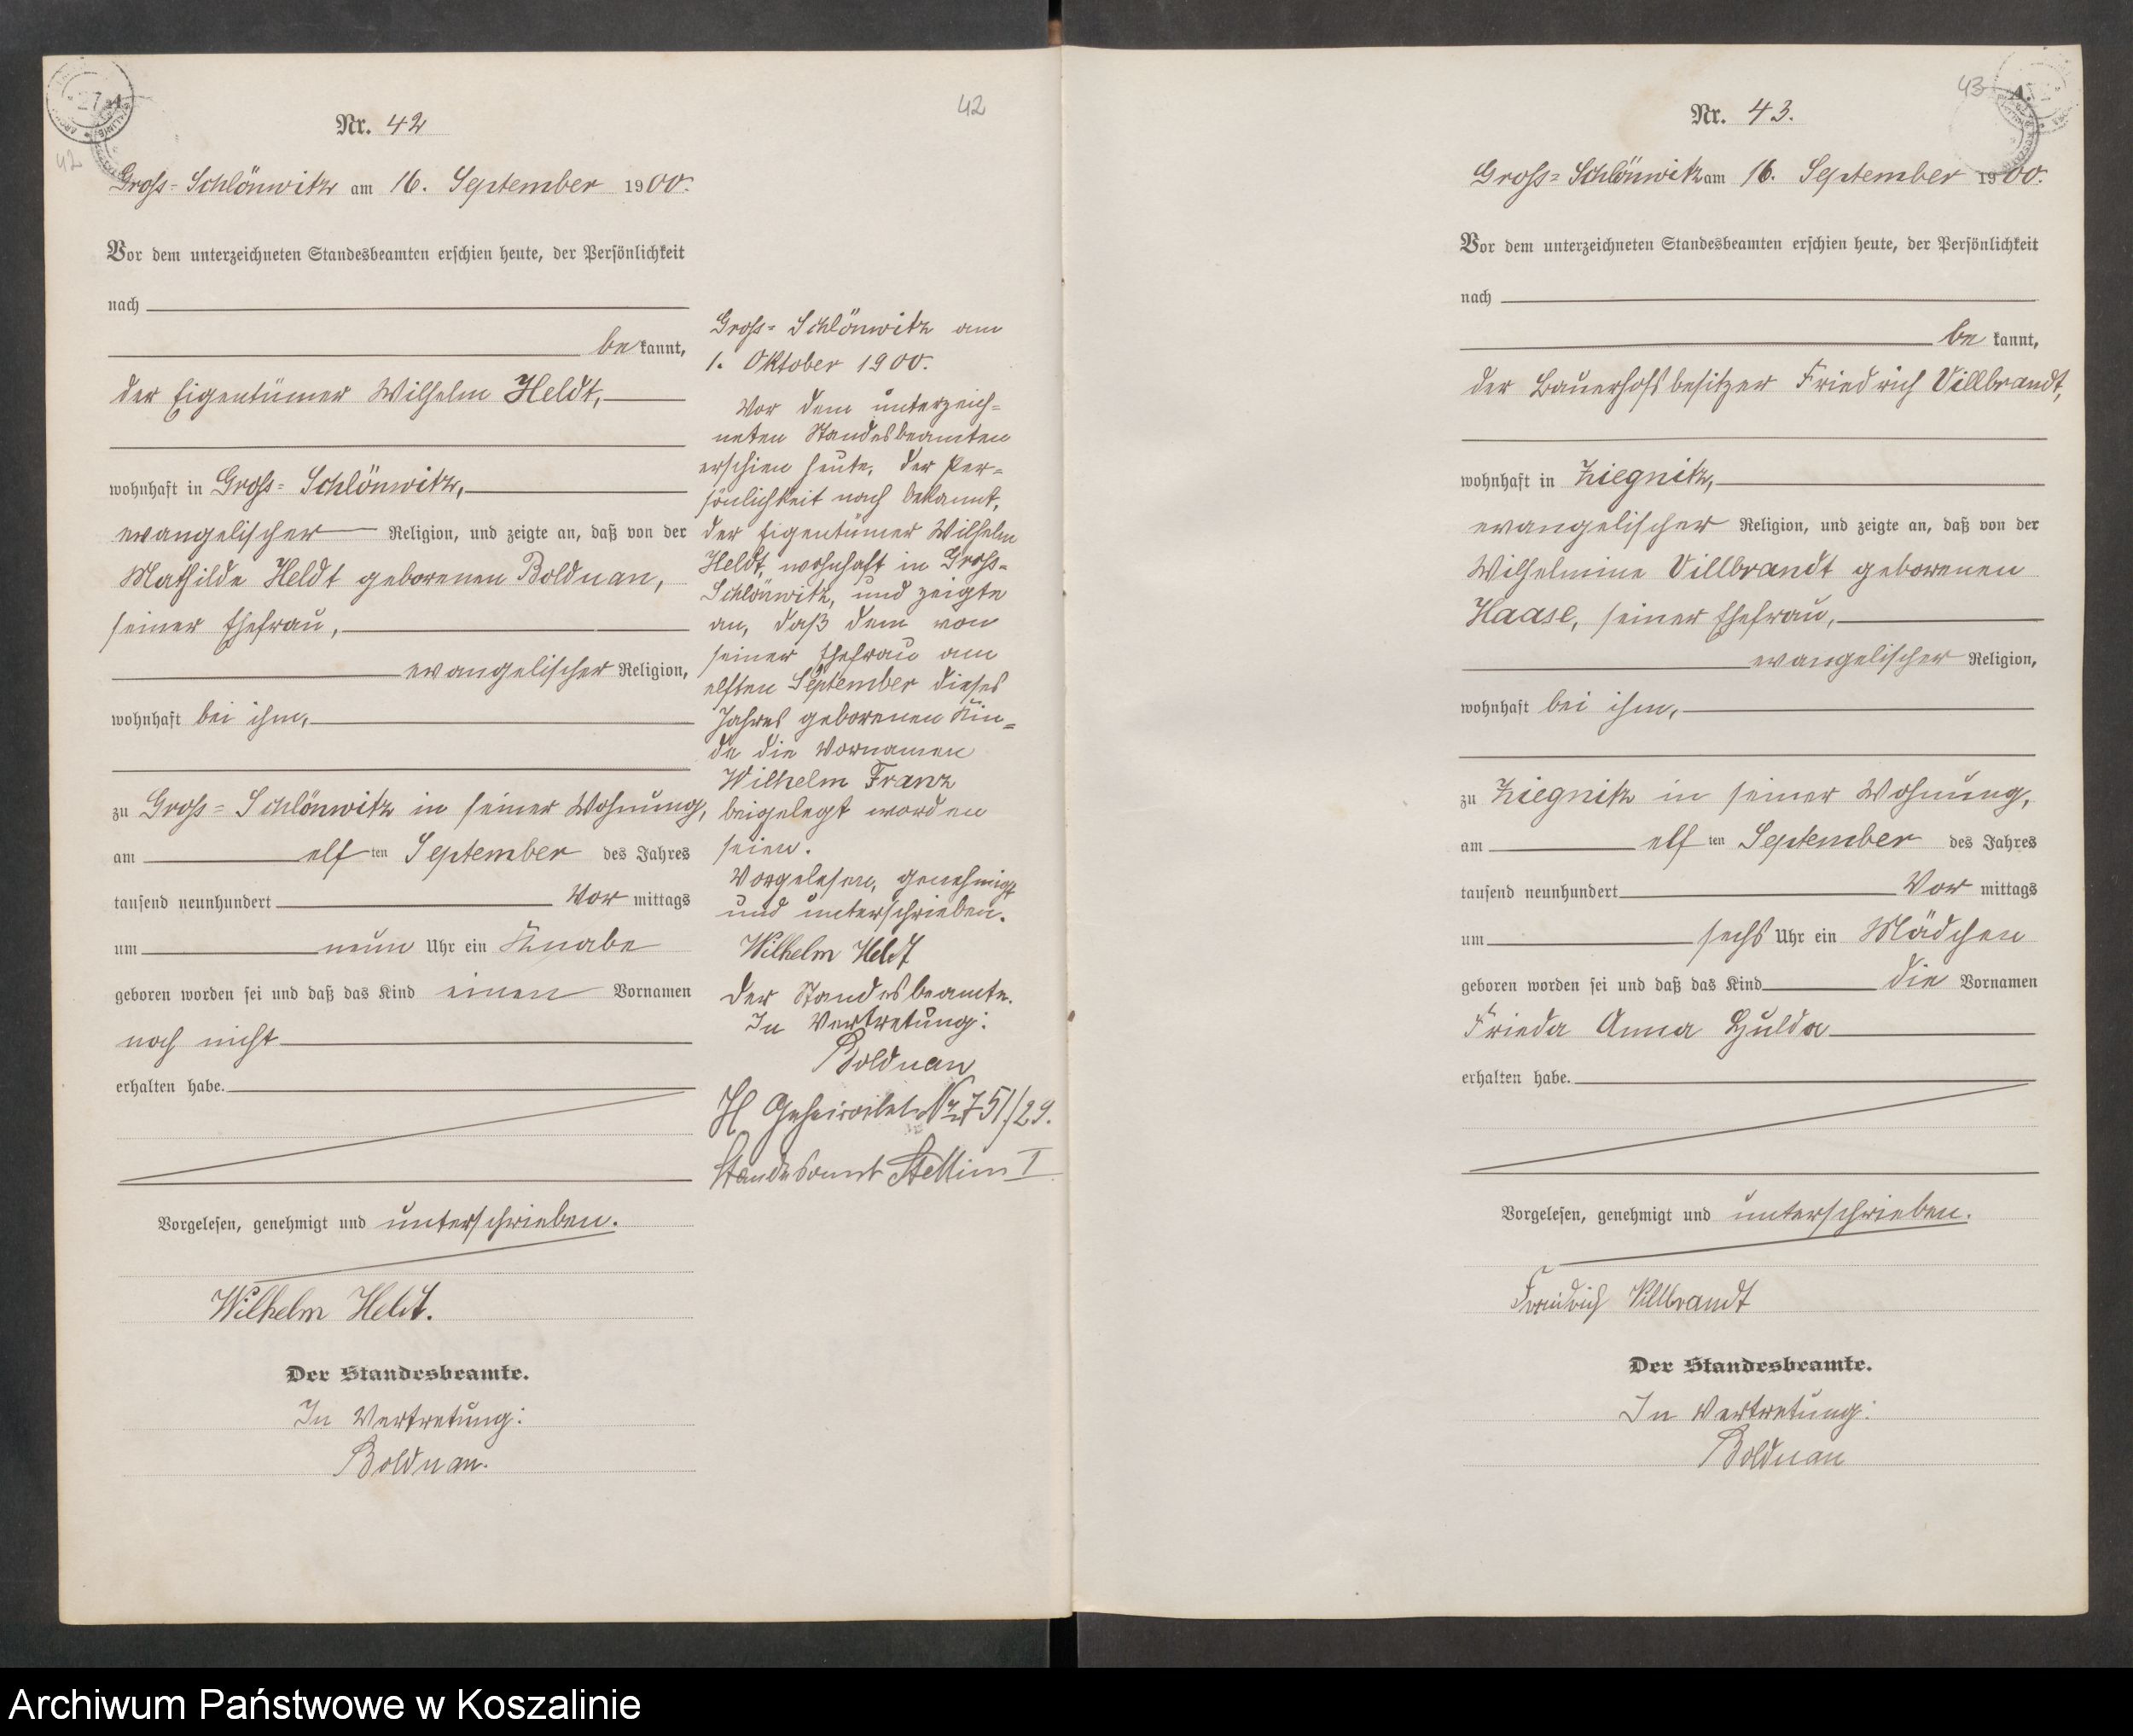 Nr. 42
42
Gross-Schlönwitz am 16. September 1900.
Vor dem unterzeichneten Standesbeamten erschien heute, der Persönlichkeit
nach
be kannt,
der Eigentümer Wilhelm Heldt,
wohnhaft in Gross-Schlönwitz,
evangelischer Religion, und zeigte an, daß von der
Mathilde Heldt geborenen Bolduan,
seiner Ehefrau,
evangelischer Religion,
wohnhaft bei ihm,
zu Gross-Schlönwitz in seiner Wohnung,
am elf ten September des Jahres
tausend neunhundert Vor mittags
um neun Uhr ein Knabe
geboren worden sei und daß das Kind einen Vornamen
noch nicht
erhalten habe.
Vorgelesen, genehmigt und unterschrieben.
Wilhelm Heldt.
Der Standesbeamte.
In Vertretung:
Bolduan.
42
Gross-Schlönwitz am
1. Oktober 1900.
Vor dem unterzeich=
neten Standesbeamten
erschien heute, der Per=
sönlichkeit nach bekannt,
der Eigentümer Wilhelm
Heldt, wohnhaft in Gross-
Schlönwitz, und zeigte
an, daß dem von
seiner Ehefrau am
elften September dieses
Jahres geborenen Kin=
de die Vornamen
Wilhelm Franz
beigelegt worden
seien.
Vorgelesen, genehmigt
und unterschrieben.
Wilhelm Heldt
Der Standesbeamte.
In Vertretung:
Bolduan
Nr 751/29.
Standesamt Stettin I
Nr. 43.
43
Gross-Schlönwitz am 16. September 1900.
Vor dem unterzeichneten Standesbeamten erschien heute, der Persönlichkeit
nach
be kannt,
der Bauerhofsbesitzer Friedrich Villbrandt,
wohnhaft in Ziegnitz,
evangelischer Religion, und zeigte an, daß von der
Wilhelmine Villbrandt geborenen
Haase, seiner Ehefrau,
evangelischer Religion,
wohnhaft bei ihm,
zu Ziegnitz in seiner Wohnung,
am elf ten September des Jahres
tausend neunhundert Vor mittags
um sechs Uhr ein Mädchen
geboren worden sei und daß das Kind die Vornamen
Frieda Anna Hulda
erhalten habe.
Vorgelesen, genehmigt und unterschrieben.
Friedrich Villbrandt
Der Standesbeamte.
In Vertretung:
Bolduan
Archiwum Państwowe w Koszalinie